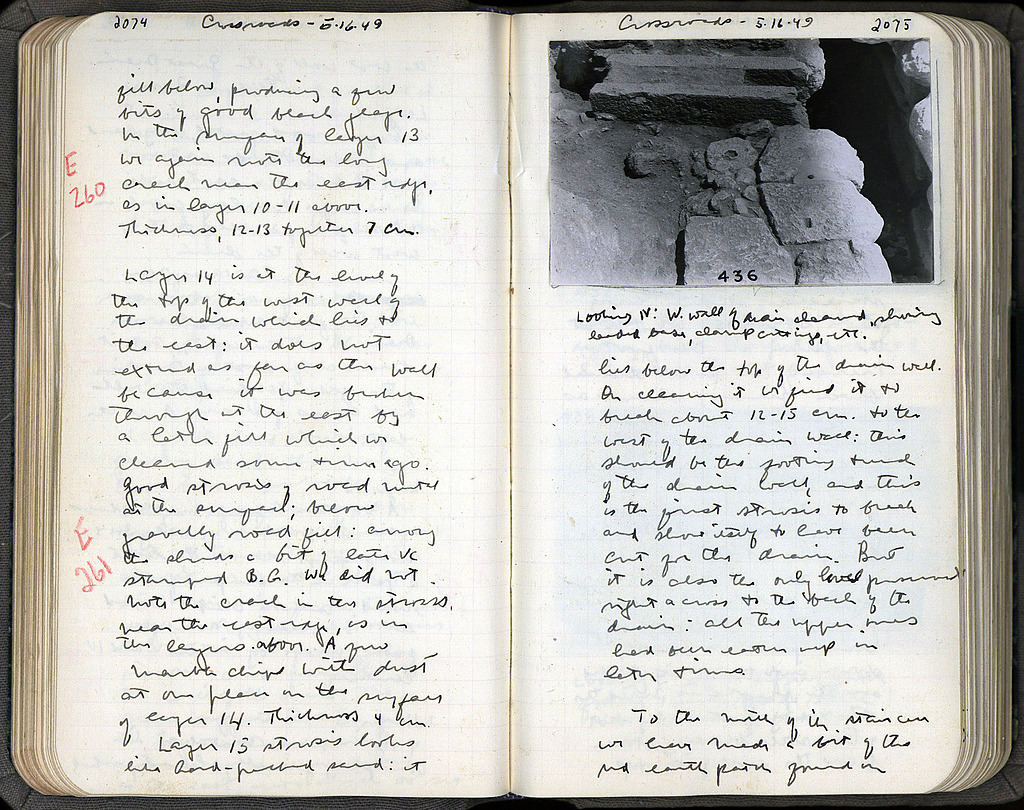 2074 Crossroads - 5.16.49
fill below, producing a few
bits of good black glaze.
In the surface of layer 13
we again note the long
crack near the east edge,
as in layer 10-11 above.
Thickness, 12-13 together 7 cm.
E
260
Layer 14 is at the level of
the top of the west wall of
the drain which lies to
the east: it does not
extend as far as the wall
because it was broken
through at the east by
a later fill which we
cleared some time ago.
Good strosis of road metal
at the surface; below
gravelly road fill: among
the sherds a bit of late V c
stamped B.G. We did not
note the crack in this strosis,
near the east edge, as in
the layers above. A few
marble chips with dust
at one place on the surface
of layer 14. Thickness 4 cm.
E
261
Layer 15 strosis looks
like hard-packed sand: it
Crossroads - 5.16.49 2075
436
Looking N: W. wall of drain cleaned, showing
base, clamp cuttings, etc.
lies below the top of the drain wall.
On cleaning it we find it to
break about 12-15 cm. to the
west of the drain wall: this
should be the footing trench
of the drain wall, and this
is the first strosis to break
and show itself to have been
cut for the drain. But
it is also the only level preserved
right across to the back of the
drain: all the upper ones
had been eaten up in
later times.
To the north of the staircase
we have made a bit of the
red earth patch found in